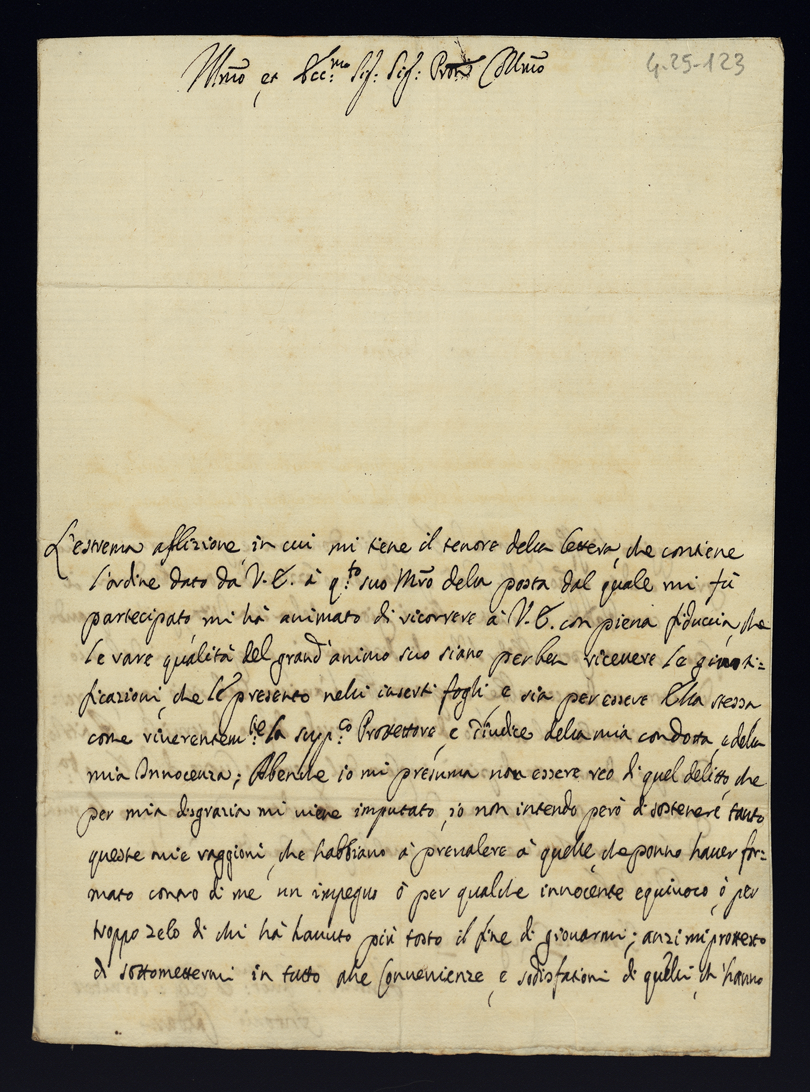 Illmo et Ecc:mo Sig: Sig: Pron Colmo
4-25-123
L'estrema aflizione, in cui mi tiene il tenore della lettera, che contiene
l'ordine dato da V. E. à q.to suo Mro della posta dal quale mi fù
partecipato mi hà animato di ricorrere à V. E. con piena fiduccia, che
le rare qualità del grand'animo suo siano per ben ricevere le giusti=
ficazioni, che le presento nelli inserti fogli, e sia per essere Ella stessa
come riverentem.te la supp.co Prottettore, e Giudice della mia condotta, e della
mia Innocenza; Abenche io mi presuma non essere reo di quel delitto, che
per mia disgrazia mi viene imputato, io non intendo però di sostenere tanto
queste mie raggioni, che habbiano à prevalere à quelle, che ponno haver for=
mato contro di me un impegno ò per qualche innocente equivoco, ò per
troppo zelo di chi hà havuto più tosto il fine di giovarmi; anzi mi prottesto
di sottomettermi in tutto alle convenienze, e sodisfationi di quelli, ch'hanno